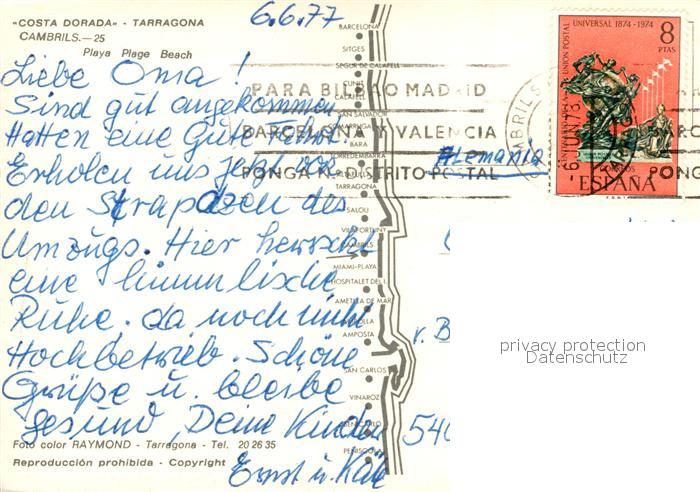 "COSTA DORADA" - TARRAGONA
CAMBRILS.—25
Playa Plage Beach
6.6.77
Liebe Oma !
Sind gut angekommen
Hatten eine Gute Fahrt.
Erholen uns jetzt von
den Strapazen des
Umzugs. Hier herrscht
eine himmlische
Ruhe. da noch nicht
Hochbetrieb. Schöne
Grüße u. bleibe
gesund, Deine Kinder
Ernst u. Käte
Foto color RAYMOND - Tarragona - Tel. 20 26 35
Reproducción prohibida - Copyright
BARCELONA
SITGES
SEGUR DE CALAFELL
CUNIT
CALAFELL
SAN SALVADOR
BARA
TORREDEMBARRA
ALTAFULLA
TARRAGONA
SALOU
VILAFORTUNY
CAMBRILS
MIAMI-PLAYA
HOSPITALET DEL I.
AMETLLA DE MAR
AMPOLLA
AMPOSTA
SAN CARLOS
VINAROZ
BENICARLO
PEÑISCOLA
PARA BILBAO MADRID
BARCELONA Y VALENCIA
PONGA N.º DISTRITO POSTAL
PONG
CAMBRILS
Alemania
UNION POSTAL UNIVERSAL 1874-1974
8
PTAS
CORREOS
ESPAÑA
v. B
540
privacy protection
Datenschutz